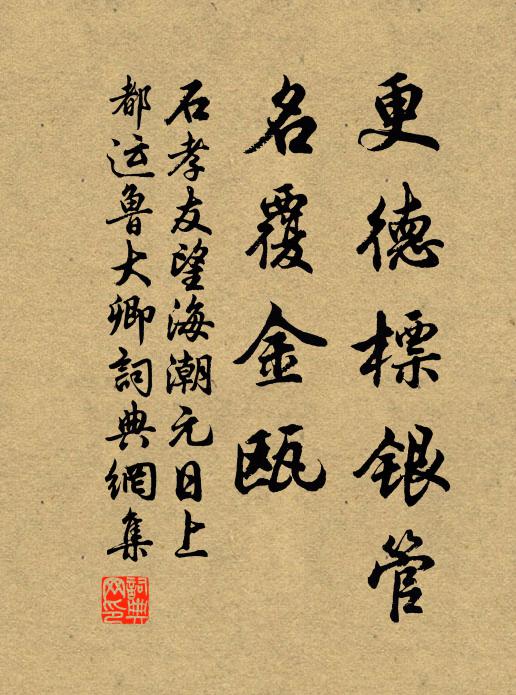 更德標銀管
名覆金瓯
石孝友望海潮元日上
都运魯大卿詞典網集
詞典
网印